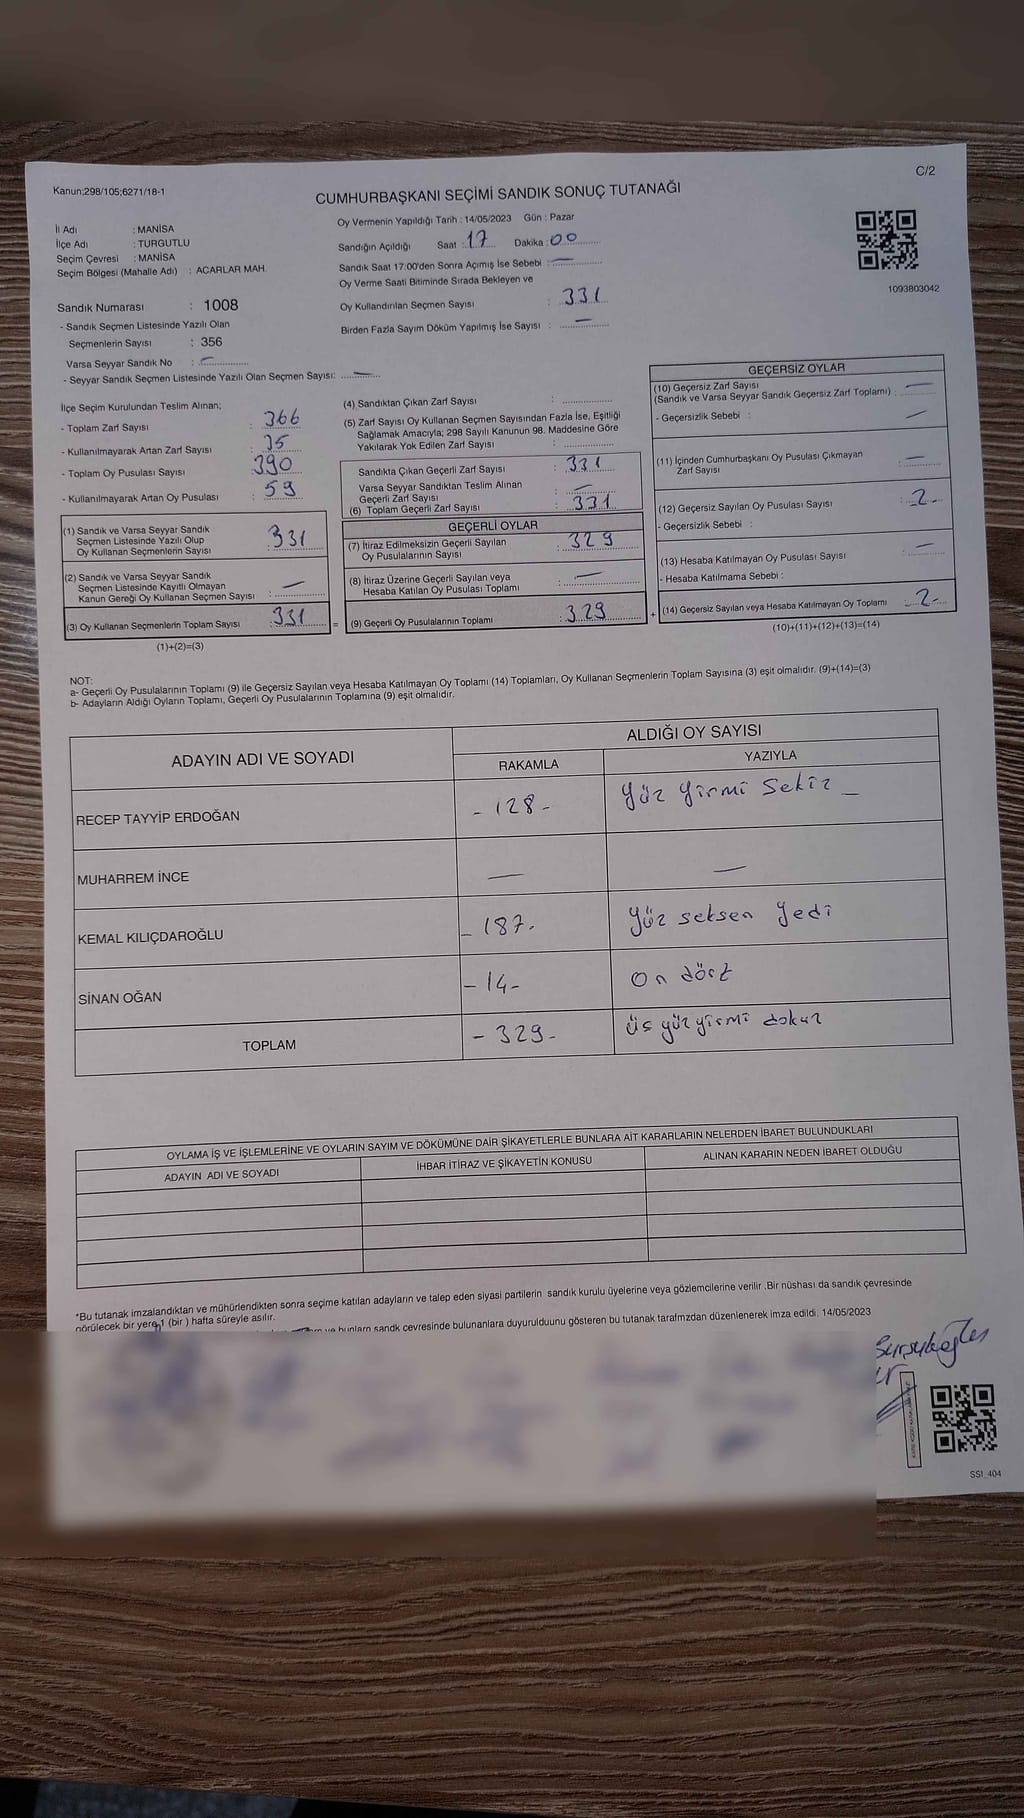 C/2
Kanun;298/105;6271/18-1
CUMHURBAŞKANI SEÇİMİ SANDIK SONUÇ TUTANAĞI
İl Adı : MANİSA
İlçe Adı : TURGUTLU
Seçim Çevresi : MANİSA
Seçim Bölgesi (Mahalle Adı) : ACARLAR MAH.
Sandık Numarası : 1008
- Sandık Seçmen Listesinde Yazılı Olan
Seçmenlerin Sayısı : 356
Varsa Seyyar Sandık No : —
- Seyyar Sandık Seçmen Listesinde Yazılı Olan Seçmen Sayısı: —
Oy Vermenin Yapıldığı Tarih : 14/05/2023 Gün : Pazar
Sandığın Açıldığı Saat : 17 Dakika : 00
Sandık Saat 17:00'den Sonra Açımış İse Sebebi : —
Oy Verme Saati Bitiminde Sırada Bekleyen ve
Oy Kullandırılan Seçmen Sayısı : 331
Birden Fazla Sayım Döküm Yapılmış İse Sayısı : —
1093803042
İlçe Seçim Kurulundan Teslim Alınan;
- Toplam Zarf Sayısı : 366
- Kullanılmayarak Artan Zarf Sayısı : 35
- Toplam Oy Pusulası Sayısı : 390
- Kullanılmayarak Artan Oy Pusulası : 59
(1) Sandık ve Varsa Seyyar Sandık
Seçmen Listesinde Yazılı Olup
Oy Kullanan Seçmenlerin Sayısı : 331
(2) Sandık ve Varsa Seyyar Sandık
Seçmen Listesinde Kayıtlı Olmayan
Kanun Gereği Oy Kullanan Seçmen Sayısı : —
(3) Oy Kullanan Seçmenlerin Toplam Sayısı : 331
(1)+(2)=(3)
(4) Sandıktan Çıkan Zarf Sayısı :
(5) Zarf Sayısı Oy Kullanan Seçmen Sayısından Fazla İse, Eşitliği
Sağlamak Amacıyla; 298 Sayılı Kanunun 98. Maddesine Göre
Yakılarak Yok Edilen Zarf Sayısı :
Sandıkta Çıkan Geçerli Zarf Sayısı : 331
Varsa Seyyar Sandıktan Teslim Alınan
Geçerli Zarf Sayısı : —
(6) Toplam Geçerli Zarf Sayısı : 331
GEÇERLİ OYLAR
(7) İtiraz Edilmeksizin Geçerli Sayılan
Oy Pusulalarının Sayısı : 329
(8) İtiraz Üzerine Geçerli Sayılan veya
Hesaba Katılan Oy Pusulası Toplamı : —
= (9) Geçerli Oy Pusulalarının Toplamı : 329
GEÇERSİZ OYLAR
(10) Geçersiz Zarf Sayısı
(Sandık ve Varsa Seyyar Sandık Geçersiz Zarf Toplamı) : —
- Geçersizlik Sebebi : —
(11) İçinden Cumhurbaşkanı Oy Pusulası Çıkmayan
Zarf Sayısı : —
(12) Geçersiz Sayılan Oy Pusulası Sayısı : 2-
- Geçersizlik Sebebi :
(13) Hesaba Katılmayan Oy Pusulası Sayısı : —
- Hesaba Katılmama Sebebi :
+ (14) Geçersiz Sayılan veya Hesaba Katılmayan Oy Toplamı : 2-
(10)+(11)+(12)+(13)=(14)
NOT:
a- Geçerli Oy Pusulalarının Toplamı (9) ile Geçersiz Sayılan veya Hesaba Katılmayan Oy Toplamı (14) Toplamları, Oy Kullanan Seçmenlerin Toplam Sayısına (3) eşit olmalıdır. (9)+(14)=(3)
b- Adayların Aldığı Oyların Toplamı, Geçerli Oy Pusulalarının Toplamına (9) eşit olmalıdır.
ADAYIN ADI VE SOYADI ALDIĞI OY SAYISI
RAKAMLA YAZIYLA
RECEP TAYYİP ERDOĞAN - 128 - Yüz Yirmi Sekiz —
MUHARREM İNCE — —
KEMAL KILIÇDAROĞLU - 187. Yüz seksen Yedi
SİNAN OĞAN - 14 - On dört
TOPLAM - 329 - üç yüz yirmi dokuz
OYLAMA İŞ VE İŞLEMLERİNE VE OYLARIN SAYIM VE DÖKÜMÜNE DAİR ŞİKAYETLERLE BUNLARA AİT KARARLARIN NELERDEN İBARET BULUNDUKLARI
ADAYIN ADI VE SOYADI İHBAR İTİRAZ VE ŞİKAYETİN KONUSU ALINAN KARARIN NEDEN İBARET OLDUĞU
*Bu tutanak imzalandıktan ve mühürlendikten sonra seçime katılan adayların ve talep eden siyasi partilerin sandık kurulu üyelerine veya gözlemcilerine verilir .Bir nüshası da sandık çevresinde
görülecek bir yere 1 (bir ) hafta süreyle asılır.
ve bunların sandk çevresinde bulunanlara duyurulduunu gösteren bu tutanak tarafımzdan düzenlenerek imza edildi. 14/05/2023
SSI_404